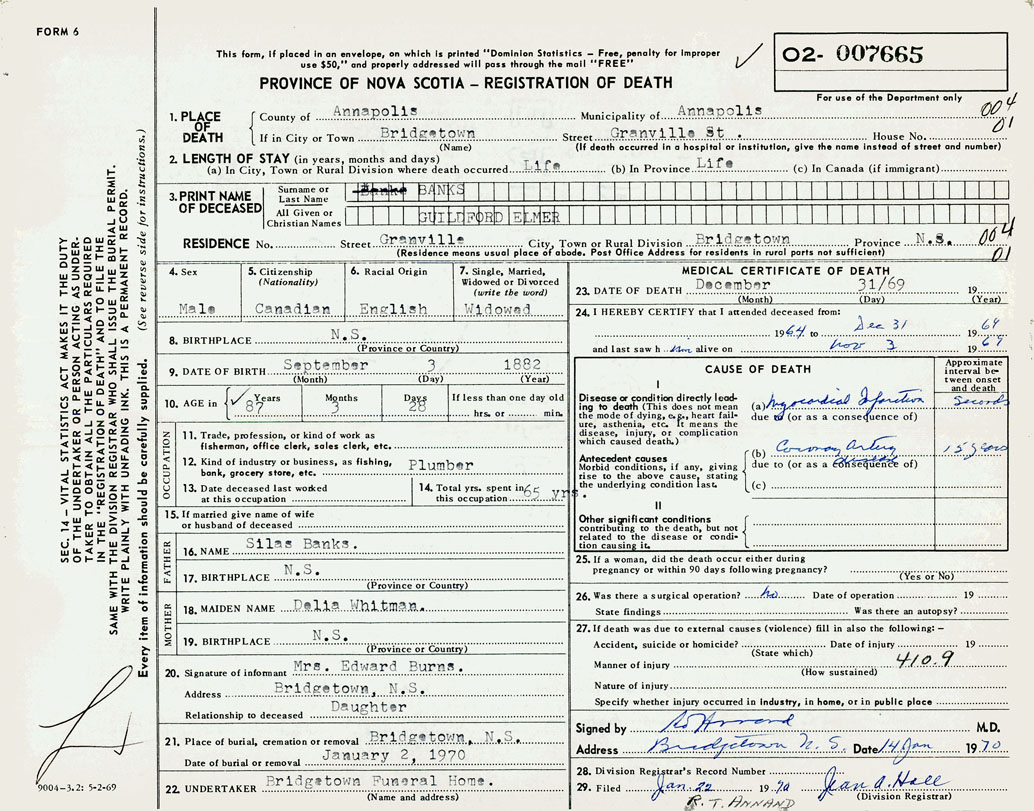 FORM 6
This form, if placed in an envelope, on which is printed "Dominion Statistics – Free, penalty for improper
use $50," and properly addressed will pass through the mail "FREE"
PROVINCE OF NOVA SCOTIA – REGISTRATION OF DEATH
O2- 007665
For use of the Department only
004
01
1. PLACE OF DEATH
County of Annapolis Municipality of Annapolis
If in City or Town Bridgetown Street Granville St. House No.
(Name) (If death occurred in a hospital or institution, give the name instead of street and number)
2. LENGTH OF STAY (in years, months and days)
(a) In City, Town or Rural Division where death occurred Life (b) In Province Life (c) In Canada (if immigrant)
3. PRINT NAME OF DECEASED
Surname or Last Name Banks BANKS
All Given or Christian Names GUILDFORD ELMER
RESIDENCE No. Street Granville City, Town or Rural Division Bridgetown Province N.S.
(Residence means usual place of abode. Post Office Address for residents in rural parts not sufficient)
004
01
4. Sex
Male
5. Citizenship
(Nationality)
Canadian
6. Racial Origin
English
7. Single, Married,
Widowed or Divorced
(write the word)
Widowed
8. BIRTHPLACE N.S.
(Province or Country)
9. DATE OF BIRTH September 3 1882
(Month) (Day) (Year)
10. AGE in Years Months Days If less than one day old
87 3 28 hrs. or min.
OCCUPATION
11. Trade, profession, or kind of work as
fisherman, office clerk, sales clerk, etc.
12. Kind of industry or business, as fishing, Plumber
bank, grocery store, etc.
13. Date deceased last worked
at this occupation
14. Total yrs. spent in
this occupation 65 yrs.
15. If married give name of wife
or husband of deceased
FATHER
16. NAME Silas Banks.
17. BIRTHPLACE N.S.
(Province or Country)
MOTHER
18. MAIDEN NAME Delia Whitman.
19. BIRTHPLACE N.S.
(Province or Country)
20. Signature of informant Mrs. Edward Burns.
Address Bridgetown, N.S.
Relationship to deceased Daughter
21. Place of burial, cremation or removal Bridgetown, N.S.
Date of burial or removal January 2, 1970
22. UNDERTAKER Bridgetown Funeral Home.
(Name and address)
MEDICAL CERTIFICATE OF DEATH
23. DATE OF DEATH December 31/69 19
(Month) (Day) (Year)
24. I HEREBY CERTIFY that I attended deceased from:
1964 to Dec 31 1969
and last saw him alive on Nov 3 1969
CAUSE OF DEATH
Approximate
interval be-
tween onset
and death
I
Disease or condition directly lead-
ing to death (This does not
mean the mode of dying, e.g., heart fail-
ure, asthenia, etc. It means the
disease, injury, or complication
which caused death.)
(a) Myocardial Infarction Seconds
due to (or as a consequence of)
Antecedent causes
Morbid conditions, if any, giving
rise to the above cause, stating
the underlying condition last.
(b) Coronary Artery disease 15 years
due to (or as a consequence of)
(c)
II
Other significant conditions
contributing to the death, but not
related to the disease or condi-
tion causing it.
25. If a woman, did the death occur either during
pregnancy or within 90 days following pregnancy?
(Yes or No)
26. Was there a surgical operation? No Date of operation 19
State findings Was there an autopsy?
27. If death was due to external causes (violence) fill in also the following: –
Accident, suicide or homicide? Date of injury 19
(State which)
Manner of injury 410.9
(How sustained)
Nature of injury
Specify whether injury occurred in industry, in home, or in public place
Signed by M.D.
Address Bridgetown N.S. Date 14 Jan 1970
28. Division Registrar's Record Number
29. Filed Jan. 22 1970 Jean A. Hall
(Division Registrar)
R. T. ANNAND
SEC. 14 – VITAL STATISTICS ACT MAKES IT THE DUTY
OF THE UNDERTAKER OR PERSON ACTING AS UNDER-
TAKER TO OBTAIN ALL THE PARTICULARS REQUIRED
IN THE "REGISTRATION OF DEATH" AND TO FILE THE
SAME WITH THE DIVISION REGISTRAR WHO SHALL ISSUE THE BURIAL PERMIT.
WRITE PLAINLY WITH UNFADING INK. THIS IS A PERMANENT RECORD.
Every item of information should be carefully supplied. (See reverse side for instructions.)
9004-3.2: 5-2-69